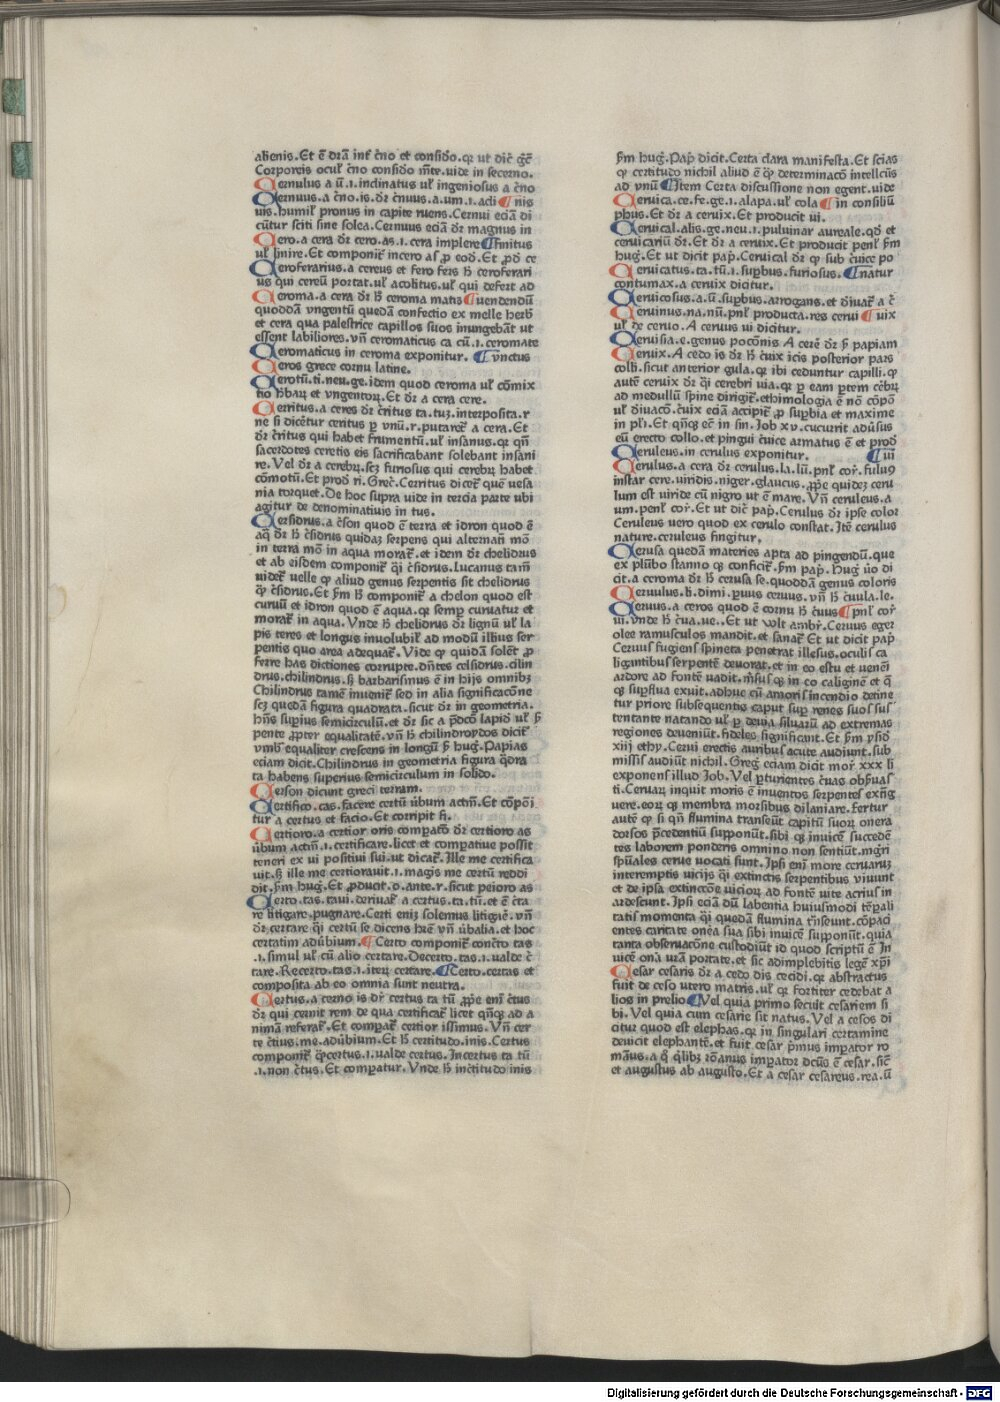 alienis.Et ē dr̄a int̄ c̄no et consid̄o.qꝛ ut dic̄ gr̄e
Corporeis ocul̄ c̄no consid̄o mēte.uide in secerno.
Cernulus a ū.i.inclinatus ul̄ ingeniosus a c̄no
Cernuus.a c̄no.is.dꝛ c̄nuus.a.um.i.acli ¶ nis
uis.humil̄ pronus in capite ruens.Cernui eciā di
cūtur sciti sine solea.Cernuus eciā dꝛ magnus in
Cero.a cera dꝛ cero.as.i.cera implere ¶ finitus
ul̄ linire.Et componit̄ incero as ꝓ eod̄.Et ꝓd̄ ce
Ceroferarius.a cereus et fero fers h̄ ceroferari
us qui cereū portat.ul̄ acolitus.ul̄ qui defert ad
Ceroma.a cera dꝛ h̄ ceroma matis ¶ uendendū
quoddā vngentū quedā confectio ex melle herb̄
et cera qua palestrice capillos suos inungebāt ut
essent labiliores.vn̄ ceromaticus ca cū.i.ceromate
Ceromaticus in ceroma exponitur. ¶ vnctus
Ceros grece cornu latine.
Cerotū.ti.neu.ge.idem quod ceroma ul̄ cōmix
tio h̄barꝝ et vngentorꝝ.Et dꝛ a cera cere.
Cerritus.a ceres dꝛ c̄ritus ta.tuꝫ.interposita.r
ne si dicēt̄ur ceritus ꝑ vnū.r.putaret̄ a cera.Et
dꝛ c̄ritus qui habet frumentū.ul̄ insanus.qꝛ qn̄
sacerdotes ceretis eis sacrificabant solebant insani
re.Vel dꝛ a cerebꝝ.scꝫ furiosus qui cerebꝝ habet
cōmotū.Et prod̄ ri.Grec̄.Cerritus dicet̄ quē uesa
nia torquet.De hoc supra uide in tercia parte ubi
agitur de denominatiuis in tus.
Cersidrus.a c̄son quod ē terra et idron quod ē
aq̄ dꝛ h̄ c̄sidrus quidaꝫ serpens qui alternati mō
in terra mō in aqua morat̄.et idem dꝛ chelidrus
et ab eisdem componit̄ q̄i c̄sidrus.Lucanus tam̄
uidet̄ uelle qꝫ aliud genus serpentis sit chelidrus
qꝫ c̄sidrus.Et s̄m h̄ componit̄ a chelon quod est
curuū et idron quod ē aqua.qꝛ semꝑ curuatur et
morat̄ in aqua.Vnde h̄ chelidrus dꝛ lignū ul̄ la
pis teres et longus inuolubil̄ ad modū illius ser
pentis quo area adequat̄.Vide qꝫ quidā solēt ꝓ
ferre has dictiones corrupte.dn̄tes celsidrus.cilin
drus.chilindrus.sꝫ barbarismus ē in hijs omnibꝫ
Chilindrus tamē inuenit̄ sed in alia significacōne
scꝫ quedā figura quadrata.sicut dꝛ in geometria.
hn̄s supius semicirculū.et dꝛ sic a p̄dc̄o lapid̄ ul̄ s̄
pente ꝓpter equalitatē.vn̄ h̄ chilindroydos dicit̄
vmb̄ equaliter crescens in longū s̄ huḡ.Papias
eciam dicit.Chilindrus in geometria figura q̄dra
ta habens superius semicirculum in solido.
Cerson dicunt greci terram.
Certifico.cas.facere certū ūbum actm̄.Et cōpōi
tur a certus et facio.Et corripit fi.
Certioro.a certior oris comparatō dꝛ certioro as
ūbum actm̄.i.certificare.licet et comꝑatiue possit
teneri ex ui positiui sui.ut dicat̄.Ille me certifica
uit.sꝫ ille me certiorauit.i.magis me certū reddi
dit.s̄m huḡ.Et ꝓducit.o.ante.r.sicut peioro as
Certo.tas.taui.deriuat̄ a certus.ta.tū.et ē c̄ta
re litigare.pugnare.Certi eniꝫ solemus litigare.vn̄
dꝛ certare q̄i certū se dicens hr̄e vn̄ ūbalia.et hoc
certatim adūbium. ¶ Certo componit̄ concēto tas
.i.simul ul̄ cū alio certare.Decerto.tas.i.ualde c̄
tare.Recerto.tas.i.iterꝝ certare. ¶ Certo.certas et
composita ab eo omnia sunt neutra.
Certus.a cerno is dꝛ certus ta tū ꝓpe enī c̄tus
dꝛ qui cernit rem de qua certificat̄ licet qn̄qꝫ ad a
nimā referat̄.Et comꝑat̄ certior issimus.Vn̄ cer
te c̄tius.me.adūbium.Et h̄ certitudo.inis.Certus
componit̄ ꝓcertus.i.ualde certus.Incertus ta tū
.i.non c̄tus.Et comꝑatur.Vnde h̄ inc̄titudo inis
s̄m huḡ.Pap̄ dicit.Certa clara manifesta.Et scias
qꝫ certitudo nichil aliud ē qꝫ determinacō intellcūs
ad vnū ¶ Item Certa discussione non egent.uide
Ceruica.ce.fe.ge.i.alapa.ul̄ cola ¶ in consiliū
phus.Et dꝛ a ceruix.Et producit ui.
Ceruical.alis.ge.neu.i.puluinar aureale.qd̄ et
ceruicariū dꝛ.Et dꝛ a ceruix.Et producit penl̄ s̄m
huḡ.Et ut dicit pap̄.Ceruical dꝛ qꝫ sub c̄uice po
Ceruicatus.ta.tū.i.suꝑbus.furiosus. ¶ natur
contumax.a ceruix dicitur.
Ceruicosus.a.ū.suꝑbus.arrogans.et d̄iuat̄ a c̄
Ceruinus.na.nū.pnl̄ producta.res cerui ¶ uix
ul̄ de ceruo.A ceruus ui dicitur.
Ceruisia.e.genus pocōnis A cerē dꝛ s̄ papiam
Ceruix.A cedo is dꝛ h̄ c̄uix icis posterior pars
colli.sicut anterior gula.qꝛ ibi ceduntur capilli.qꝫ
autē ceruix dꝛ q̄i cerebri uia.qꝛ ꝑ eam ꝑtem c̄ebꝝ
ad medullū spine dirigit̄.ethimologia ē nō cōpō
ul̄ d̄iuacō.c̄uix eciā accipit̄ ꝓ suꝑbia et maxime
in pl̄i.Et qn̄qꝫ ec̄ in sin.Job xv.cucurrit adūsus
eū erecto collo.et pingui c̄uice armatus ē et prod̄
Ceruleus.in cerulus exponitur. ¶ ui
Cerulus.a cera dꝛ cerulus.la.lū.pnl̄ cor̄.fuluꝰ
instar cere.uiridis.niger.glaucus.ꝓpe quideꝫ ceru
lum est uiride cū nigro ut ē mare.Vn̄ ceruleus.a
um.penl̄ cor̄.Et ut dic̄ pap̄.Cerulus dꝛ ipse color
Ceruleus uero quod ex cerulo constat.Itē cerulus
nature.ceruleus fingitur.
Cerusa quedā materies apta ad pingendū.que
ex plūbo stanno qꝫ conficit̄.s̄m pap̄.Huḡ ūo di
cit.a ceroma dꝛ h̄ cerusa se.quoddā genus coloris
Ceruulus.li.dimi.ꝑuus ceruus.vn̄ h̄ c̄uula.le.
Ceruus.a ceros quod ē cornu h̄ c̄uus ¶ pnl̄ cor̄
ui.vnde h̄ c̄ua.ue..Et ut volt ambr̄.Ceruus eger
olee ramusculos mandit.et sanat̄ Et ut dicit pap̄
Ceruus fugiens spineta penetrat illesus.oculis ca
ligantibus serpentē deuorat.et in eo estu et uenēi
ardore ad fontē uadit.m̄sus qꝫ in eo caliginē et q̄
qꝫ suꝑflua exuit.adhuc cū amoris incendio detine
tur priore subsequentis caput suꝑ renes suos sus
tentante natando ul̄ ꝑ deuia siluarū ad extremas
regiones deueniūt.fideles significant.Et s̄m ysid̄
xij ethy.Cerui erectis auribus acute audiunt.sub
missis audiūt nichil.Greḡ eciam dicit mor̄ xxx li
exponens illud Job.Vel ꝑturientes c̄uas obs̄uas
ti.Ceruaꝝ inquit moris ē inuentos serpentes extīg
uere.eorꝝ qꝫ membra morsibus dilaniare.fertur
autē qꝫ si qn̄ flumina transeūt capitū suorꝝ onera
dorsos p̄cedentiū suppōnūt.sibi qꝫ inuicē succedē
tes laborem ponderis omnino non sentiūt.mḡri
spūales cerue uocati sunt.Ipsi enī more ceruarꝫ
interemptis uicijs q̄i extinctis serpentibus viuunt
et de ipsa extinccōe viciorꝫ ad fontē uite acrius in
ardescunt.Ipsi eciā dū labentia huiusmodi tēꝑali
tatis momenta q̄i quedā flumina trn̄seunt.cōpaci
entes caritate onēa sua sibi inuicē suppōnūt.quia
tanta obseruacōne custodiūt id quod scriptū ē In
uicē onēa ura portate.et sic adimplebitis legē xp̄i
Cesar cesaris dꝛ a cedo dis cecidi.qꝛ abstractus
fuit de ceso utero matris.ul̄ qꝛ fortiter cedebat a
lios in prelio ¶ Vel quia primo secuit cesariem si
bi.Vel quia cum cesarie sit natus.Vel a cesos di
citur quod est elephas.qꝛ in singulari certamine
deuicit elephantē.et fuit cesar p̄mus imꝑator ro
mānus.a q̄ q̄libꝫ rōanus imꝑator dc̄us ē cesar.sic̄
et augustus ab augusto.Et a cesar cesareus.rea.ū
Digitalisierung gefördert durch die Deutsche Forschungsgemeinschaft - DFG